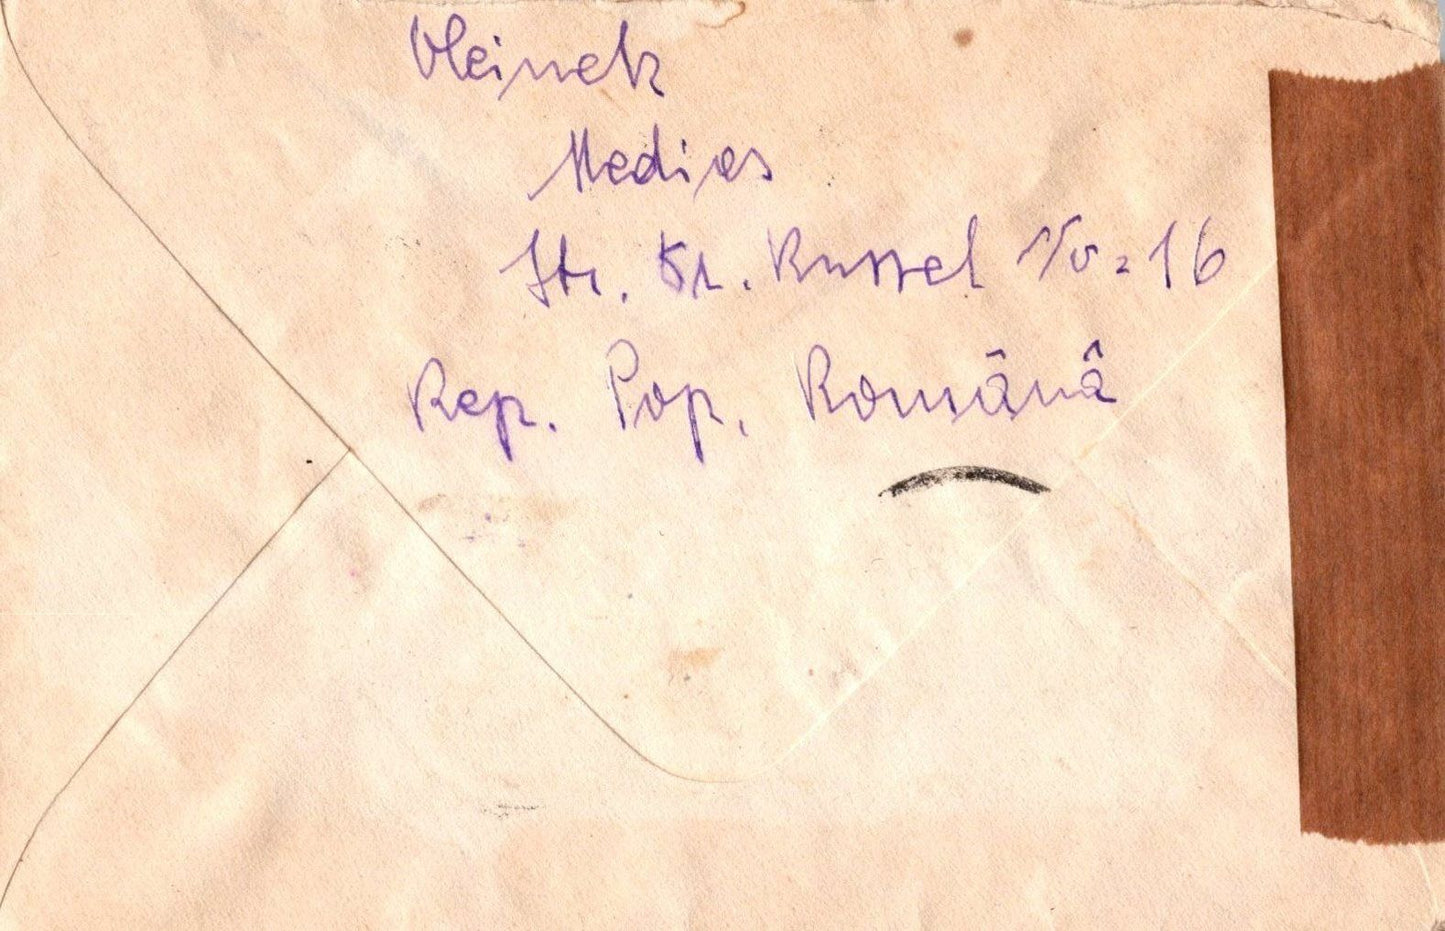 Oleinek
Medias
Str. Dr. Russel No. 16
Rep. Pop. Română